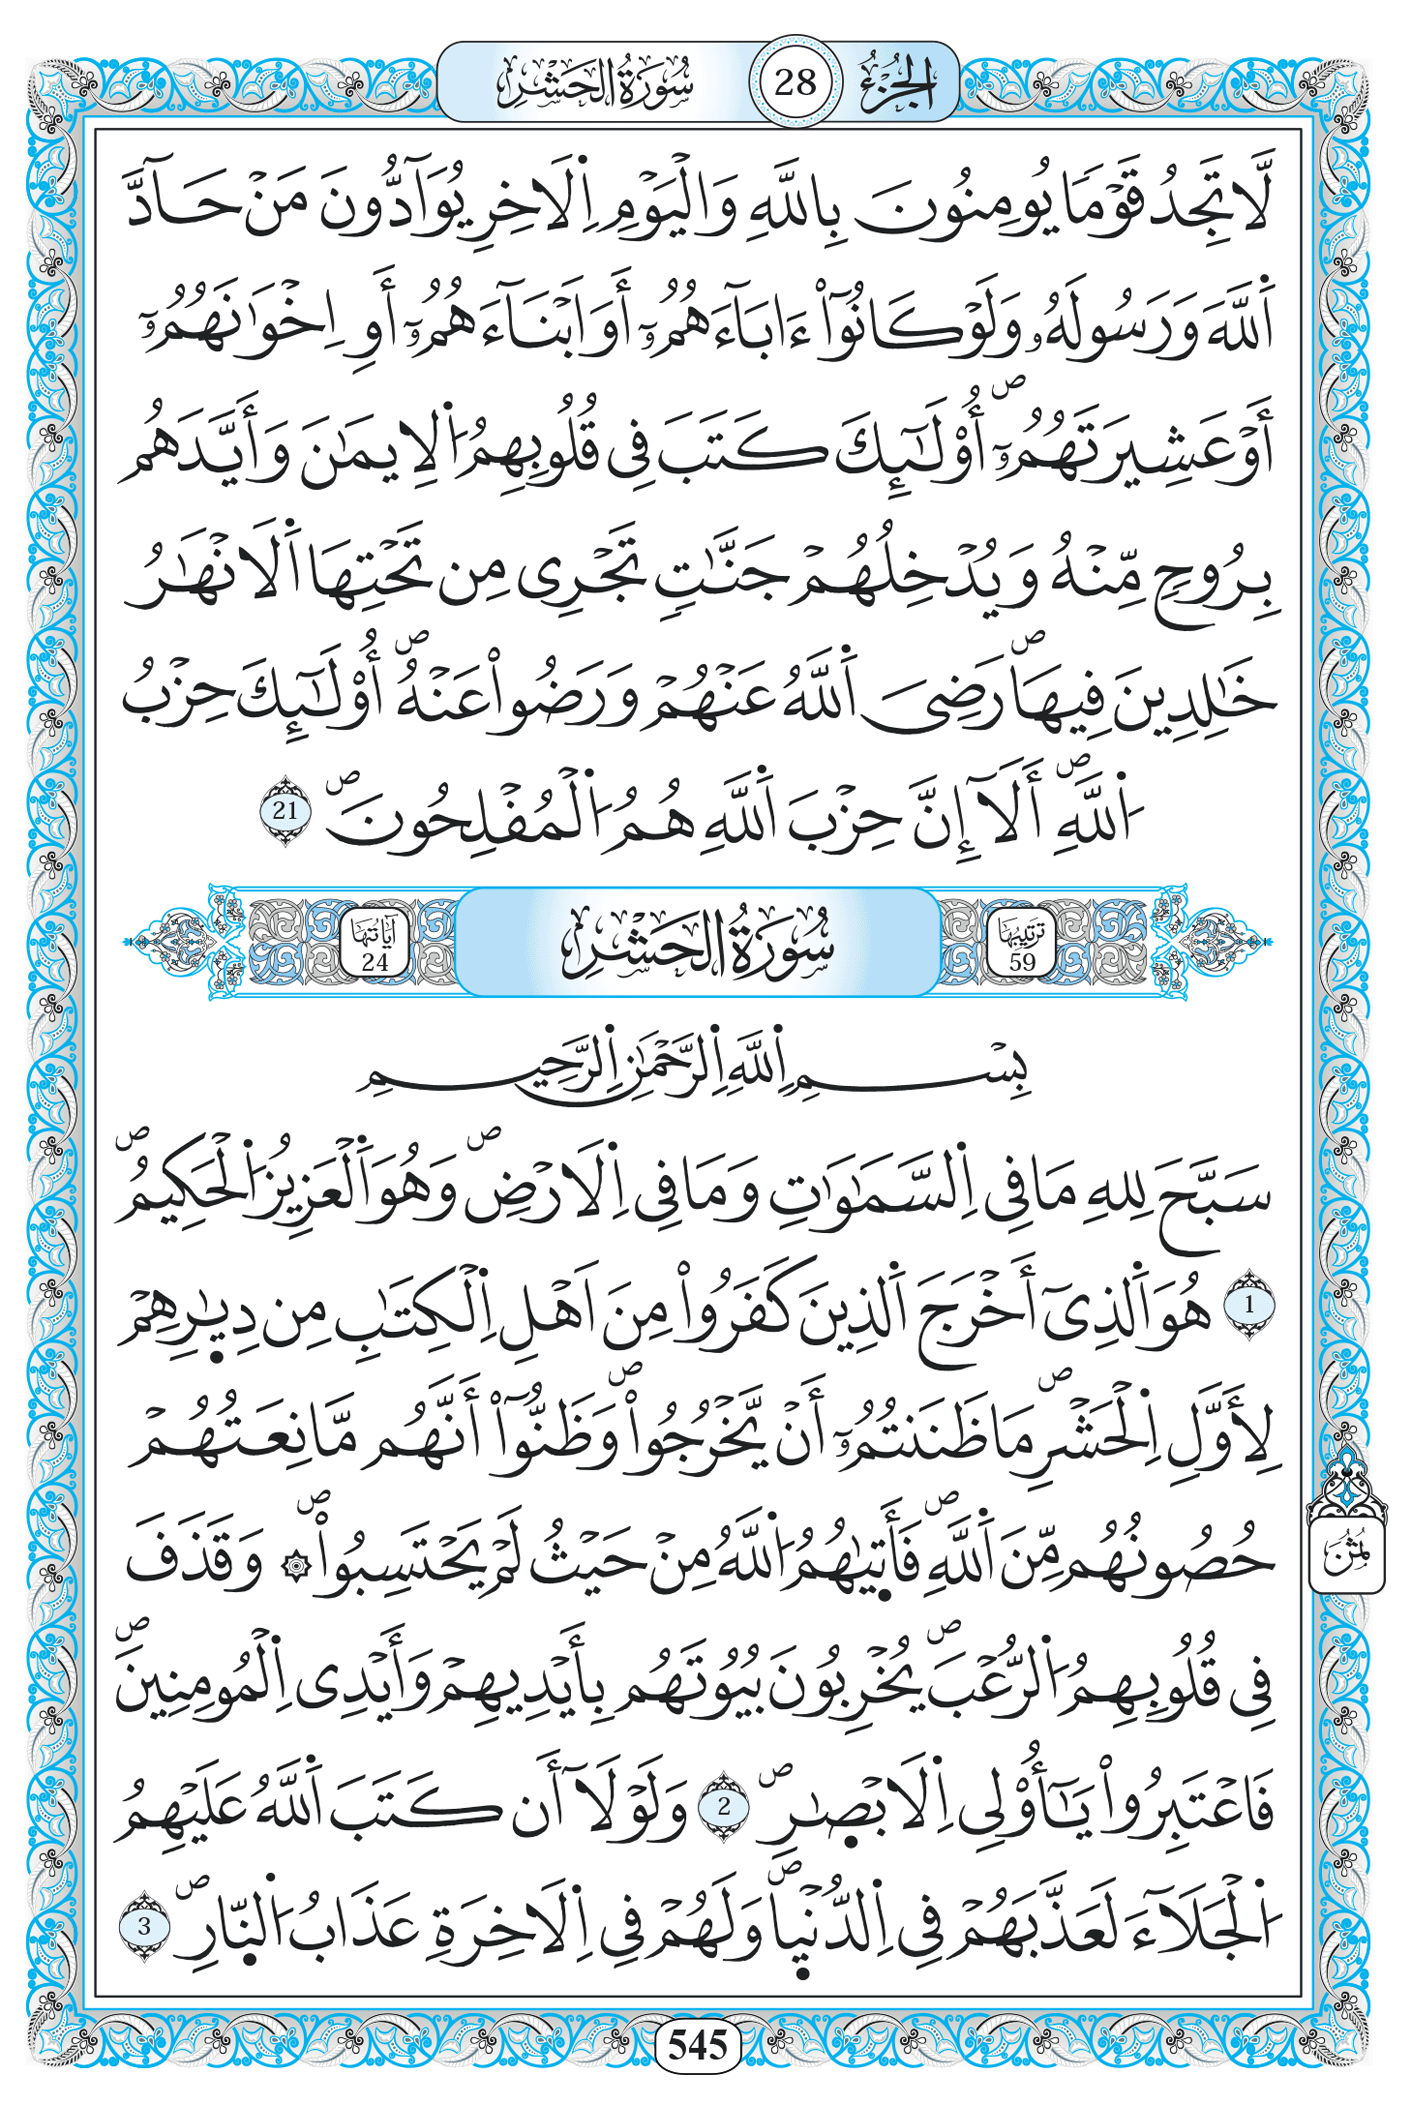 الجُزْءُ 28 سُورَةُ الحَشْرِ
لَّا تَجِدُ قَوْمٗا يُومِنُونَ بِاللَّهِ وَالْيَوْمِ اِ۬لَاخِرِ يُوَآدُّونَ مَنْ حَآدَّ
اَ۬للَّهَ وَرَسُولَهُۥ وَلَوْ كَانُوٓاْ ءَابَآءَهُمُۥٓ أَوَ اَبْنَآءَهُمُۥٓ أَوِ اِخْوَٰنَهُمُۥٓ
أَوْ عَشِيرَتَهُمُۥٓۖ أُوْلَٰٓئِكَ كَتَبَ فِى قُلُوبِهِمُ اُ۬لِايمَٰنَ وَأَيَّدَهُم
بِرُوحٖ مِّنْهُ وَيُدْخِلُهُمْ جَنَّٰتٖ تَجْرِى مِن تَحْتِهَا اَ۬لَانْهَٰرُ
خَٰلِدِينَ فِيهَاۖ رَضِىَ اَ۬للَّهُ عَنْهُمْ وَرَضُواْ عَنْهُۖ أُوْلَٰٓئِكَ حِزْبُ
اُ۬للَّهِۖ أَلَآ إِنَّ حِزْبَ اَ۬للَّهِ هُمُ اُ۬لْمُفْلِحُونَۖ 21
ترتيبها 59 سُورَةُ الحَشْرِ آياتها 24
بِسْمِ اِ۬للَّهِ اِ۬لرَّحْمَٰنِ اِ۬لرَّحِيمِ
سَبَّحَ لِلهِ مَا فِى اِ۬لسَّمَٰوَٰتِ وَمَا فِى اِ۬لَارْضِۖ وَهُوَ اَ۬لْعَزِيزُ اُ۬لْحَكِيمُۖ
1 هُوَ اَ۬لذِىٓ أَخْرَجَ اَ۬لذِينَ كَفَرُواْ مِنَ اَهْلِ اِ۬لْكِتَٰبِ مِن دِيٰ۪رِهِمْ
لِأَوَّلِ اِ۬لْحَشْرِۖ مَا ظَنَنتُمُۥٓ أَنْ يَّخْرُجُواْۖ وَظَنُّوٓاْ أَنَّهُم مَّانِعَتُهُمْ
حُصُونُهُم مِّنَ اَ۬للَّهِۖ فَأَت۪يٰهُمُ اُ۬للَّهُ مِنْ حَيْثُ لَمْ يَحْتَسِبُواْۖ ۞ وَقَذَفَ
ثُمُن
فِى قُلُوبِهِمُ اُ۬لرُّعْبَۖ يُخْرِبُونَ بُيُوتَهُم بِأَيْدِيهِمْ وَأَيْدِى اِ۬لْمُومِنِينَۖ
فَاعْتَبِرُواْ يَٰٓأُوْلِى اِ۬لَابْصٰ۪رِۖ 2 وَلَوْلَآ أَن كَتَبَ اَ۬للَّهُ عَلَيْهِمُ
اُ۬لْجَلَآءَ لَعَذَّبَهُمْ فِى اِ۬لدُّنْي۪اۖ وَلَهُمْ فِى اِ۬لَاخِرَةِ عَذَابُ اُ۬لنّ۪ارِۖ 3
545